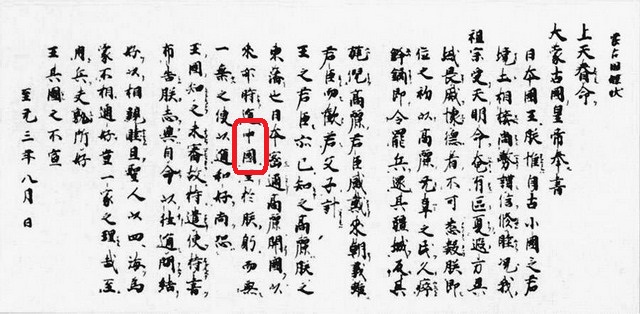 蒙古国牒状
上天眷命
大蒙古國皇帝奉書
日本國王朕惟自古小國之君
境土相接尚務講信修睦況我
祖宗受天明命奄有區夏遐方異
域畏威懷德者不可悉數朕即
位之初以高麗无辜之民久瘁
鋒鏑即令罷兵還其疆域反其
旄倪高麗君臣感戴來朝義雖
君臣而歡若父子計
王之君臣亦已知之高麗朕之
東藩也日本密邇高麗開國以
來亦時通中國至於朕躬而無
一乘之使以通和好尚恐
王國知之未審故特遣使持書
布告朕志冀自今以往通問結
好以相親睦且聖人以四海為
家不相通好豈一家之理哉至
用兵夫孰所好
王其圖之不宣
至元三年八月日